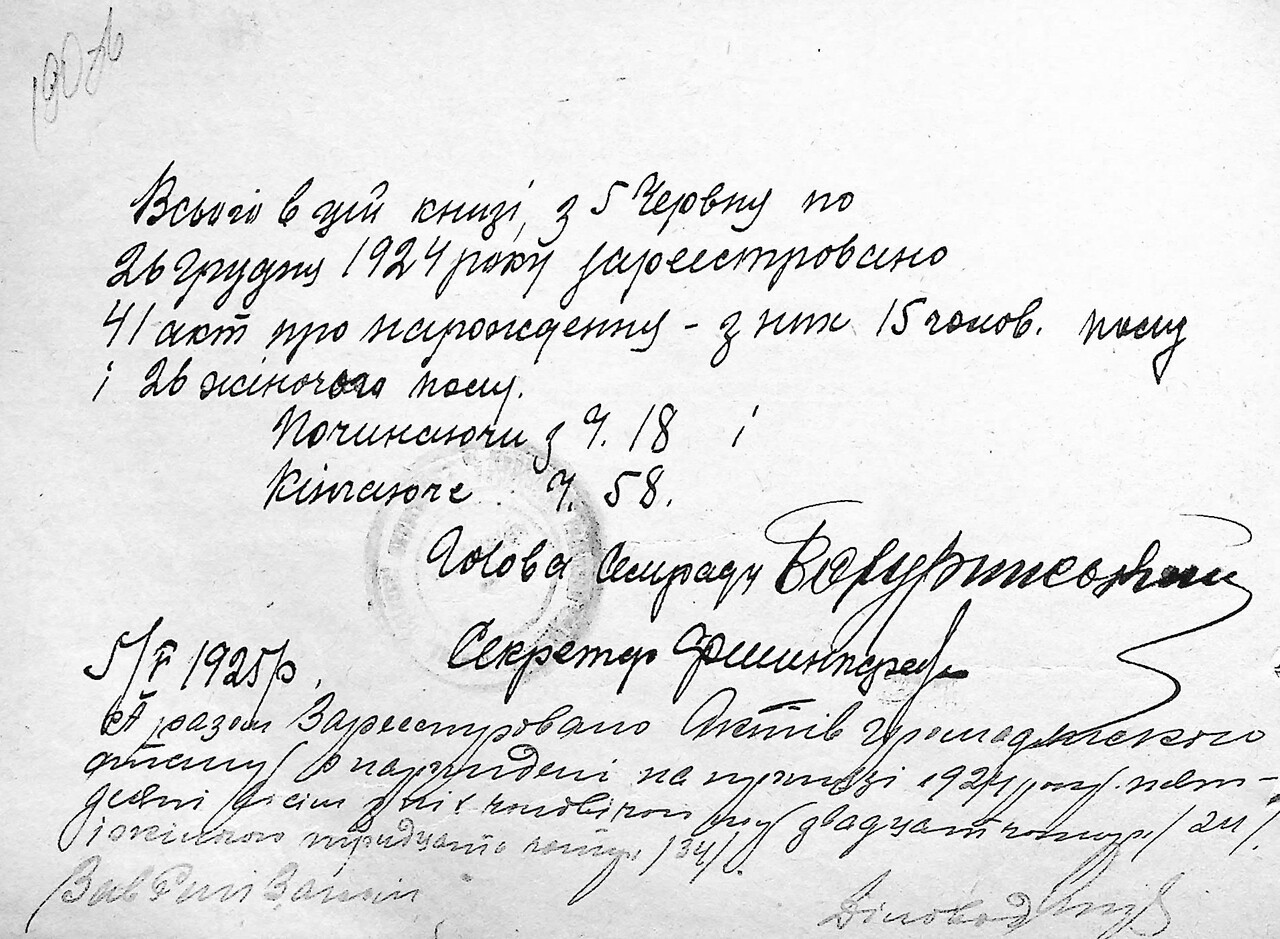 Всього в цій книзі, з 5 Червня по
26 Грудня 1924 року зареєстровано
41 акт про народження - з них 15 чолов. полу
і 26 жіночого полу.
Починаючи з Ч. 18 і
Кінчаюче Ч. 58.
Голова Сельради
Секретар
5/I 1925 р.
А разом Зареестровано Актів Громадянського
стану 1924 року пят-
десят вісім з них чоловічого двадцать чотири /24/
і жіночого тридцать чотири /34/.
Діловод